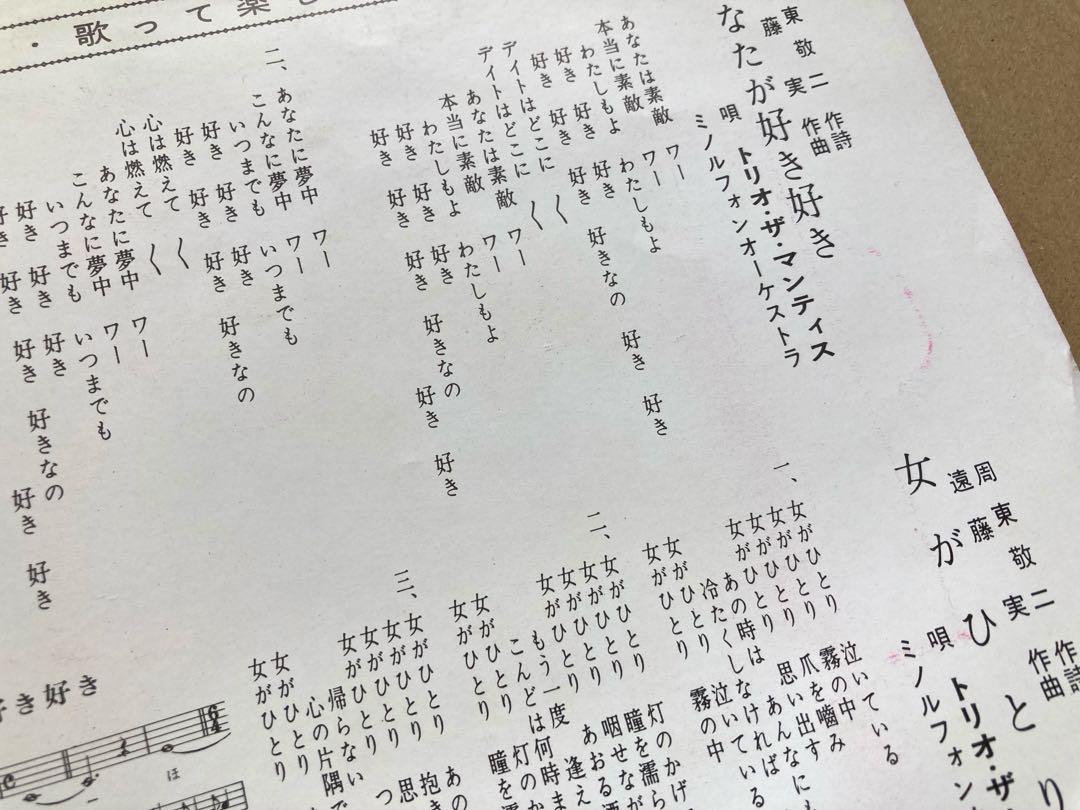 ・歌って楽し
なたが好き好き
東敬二 作詩
藤実 作曲
唄 トリオ・ザ・マンティス
ミノルフォンオーケストラ
あなたは素敵 ワー
本当に素敵
わたしもよ わたしもよ
好き 好き 好き 好きなの 好き 好き
好き 好き 好き
デイトはどこに 〱
デイトはどこに
あなたは素敵 ワー
本当に素敵 ワー
わたしもよ わたしもよ
好き 好き 好き 好きなの 好き 好き
好き 好き 好き
二、あなたに夢中 ワー
こんなに夢中 ワー
いつまでも いつまでも
好き 好き 好き 好きなの
好き 好き 好き
心は燃えて 〱
心は燃えて
あなたに夢中 ワー
こんなに夢中 ワー
いつまでも いつまでも
好き 好き 好き 好きなの 好き 好き
好き 好き 好き
女がひとり
周
遠
東敬二 作詩
藤実 作曲
唄 トリオ・ザ
ミノルフォン
一、女がひとり 泣いている
女がひとり 霧の中
女がひとり 爪を嚙み
女がひとり 思い出す
あの時は あんなにも
冷たくしなければ
女がひとり 泣いている
女がひとり 霧の中
二、女がひとり 灯のかげ
女がひとり 瞳を濡ら
女がひとり 咽せなが
女がひとり あおる
もう一度 逢え
こんどは何時ま
女がひとり 灯のか
女がひとり 瞳を
三、女がひとり あの
女がひとり 抱き
女がひとり 思
女がひとり つ
帰らない
心の片隅で
女がひとり
女がひとり
好き好き
ほ